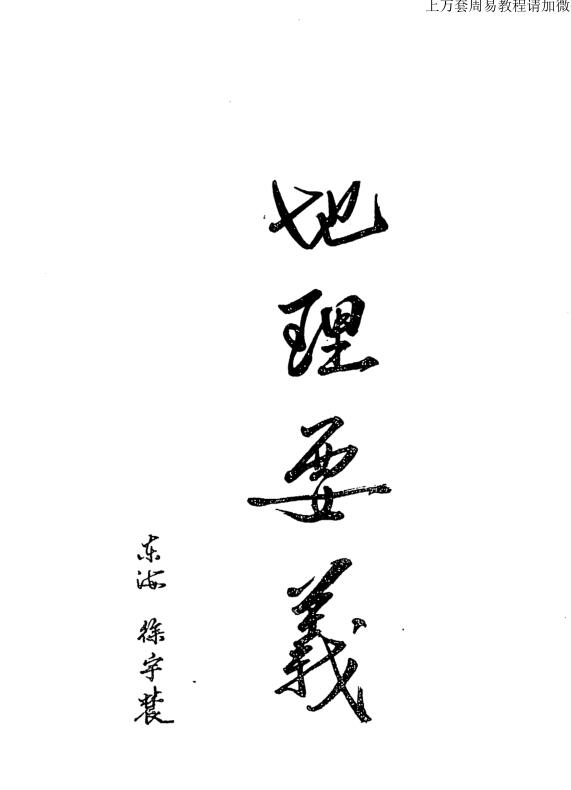 上万套周易教程请加微
地理要義
东海 徐宇辳